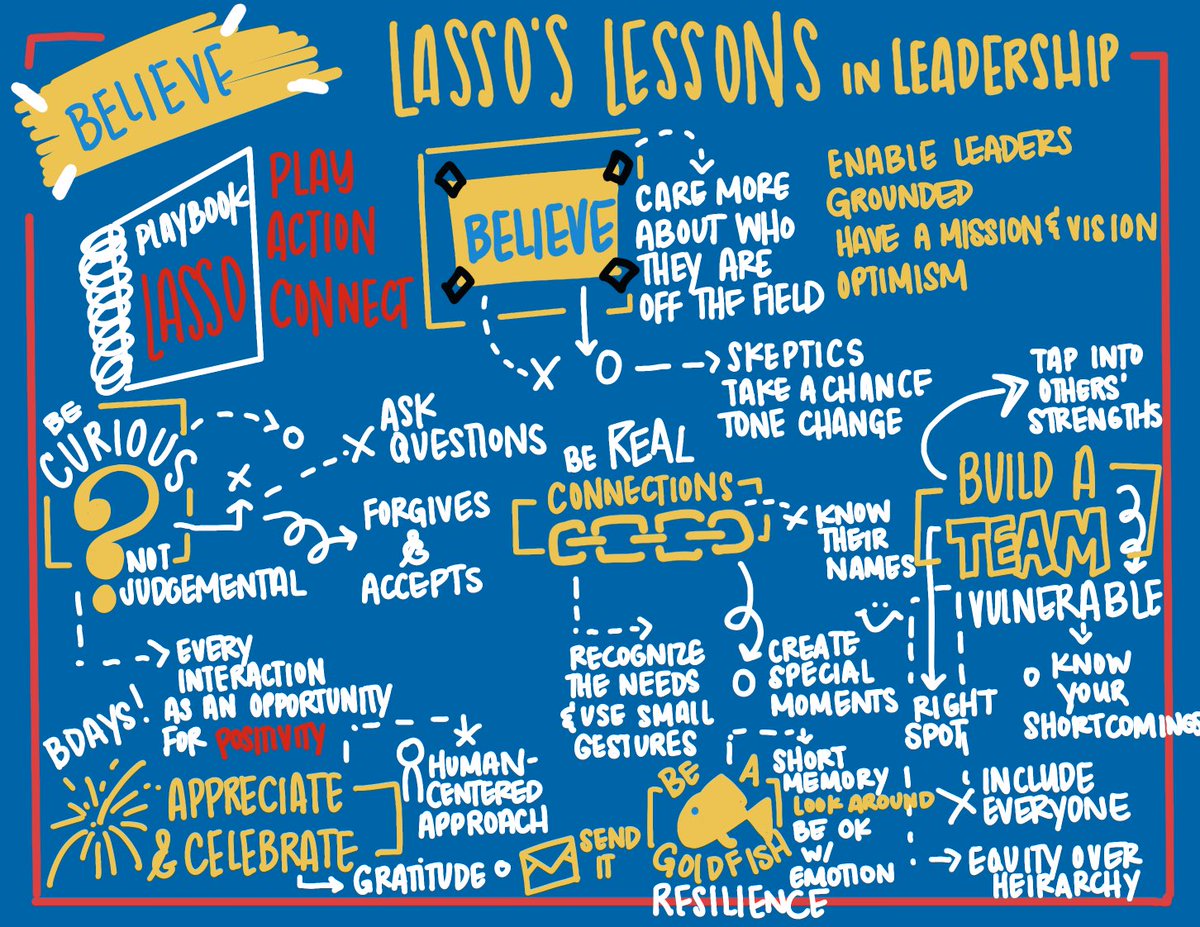 BELIEVE
LASSO'S LESSONS IN LEADERSHIP
PLAYBOOK
LASSO
PLAY
ACTION
CONNECT
BELIEVE
CARE MORE
ABOUT WHO
THEY ARE
OFF THE FIELD
ENABLE LEADERS
GROUNDED
HAVE A MISSION & VISION
OPTIMISM
X O
SKEPTICS
TAKE A CHANCE
TONE CHANGE
BE
CURIOUS
?
NOT
JUDGEMENTAL
O
X
X ASK
QUESTIONS
FORGIVES
&
ACCEPTS
EVERY
INTERACTION
AS AN OPPORTUNITY
FOR POSITIVITY
BE REAL
CONNECTIONS
X KNOW
THEIR
NAMES
RECOGNIZE
THE NEEDS
& USE SMALL
GESTURES
O CREATE
SPECIAL
MOMENTS
TAP INTO
OTHERS'
STRENGTHS
BUILD A
TEAM
VULNERABLE
O KNOW
YOUR
SHORTCOMINGS
RIGHT
SPOT
X INCLUDE
EVERYONE
EQUITY OVER
HEIRARCHY
BDAYS!
APPRECIATE
& CELEBRATE
HUMAN-
CENTERED
APPROACH
GRATITUDE
SEND
IT
BE A
GOLDFISH
RESILIENCE
SHORT
MEMORY
LOOK AROUND
BE OK
W/
EMOTION